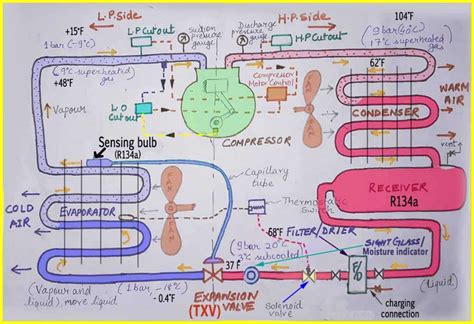 L.P.Side
H.P.Side
+15°F
1 bar (-9°c)
L.P Cutout
Suction pressure gauge
Discharge pressure gauge
H.P Cutout
104°F
9 bar (40°c)
17°c superheated gas
(9°c superheated gas)
+48°F
62°F
Vapour
L O Cutout
Compressor Motor Control
COMPRESSOR
FAN
CONDENSER
WARM AIR
vent
Sensing bulb
(R134a)
Capillary tube
RECEIVER
R134a
COLD AIR
EVAPORATOR
FAN
Thermostatic Switch
68°F
FILTER/DRIER
9 bar 20°c
3°c subcooled
SIGHT GLASS/
Moisture indicator
37°F
(Vapour and liquid), more liquid
(1 bar, -18°c)
- 0.4°F
EXPANSION VALVE
(TXV)
Solenoid valve
charging connection
(liquid)